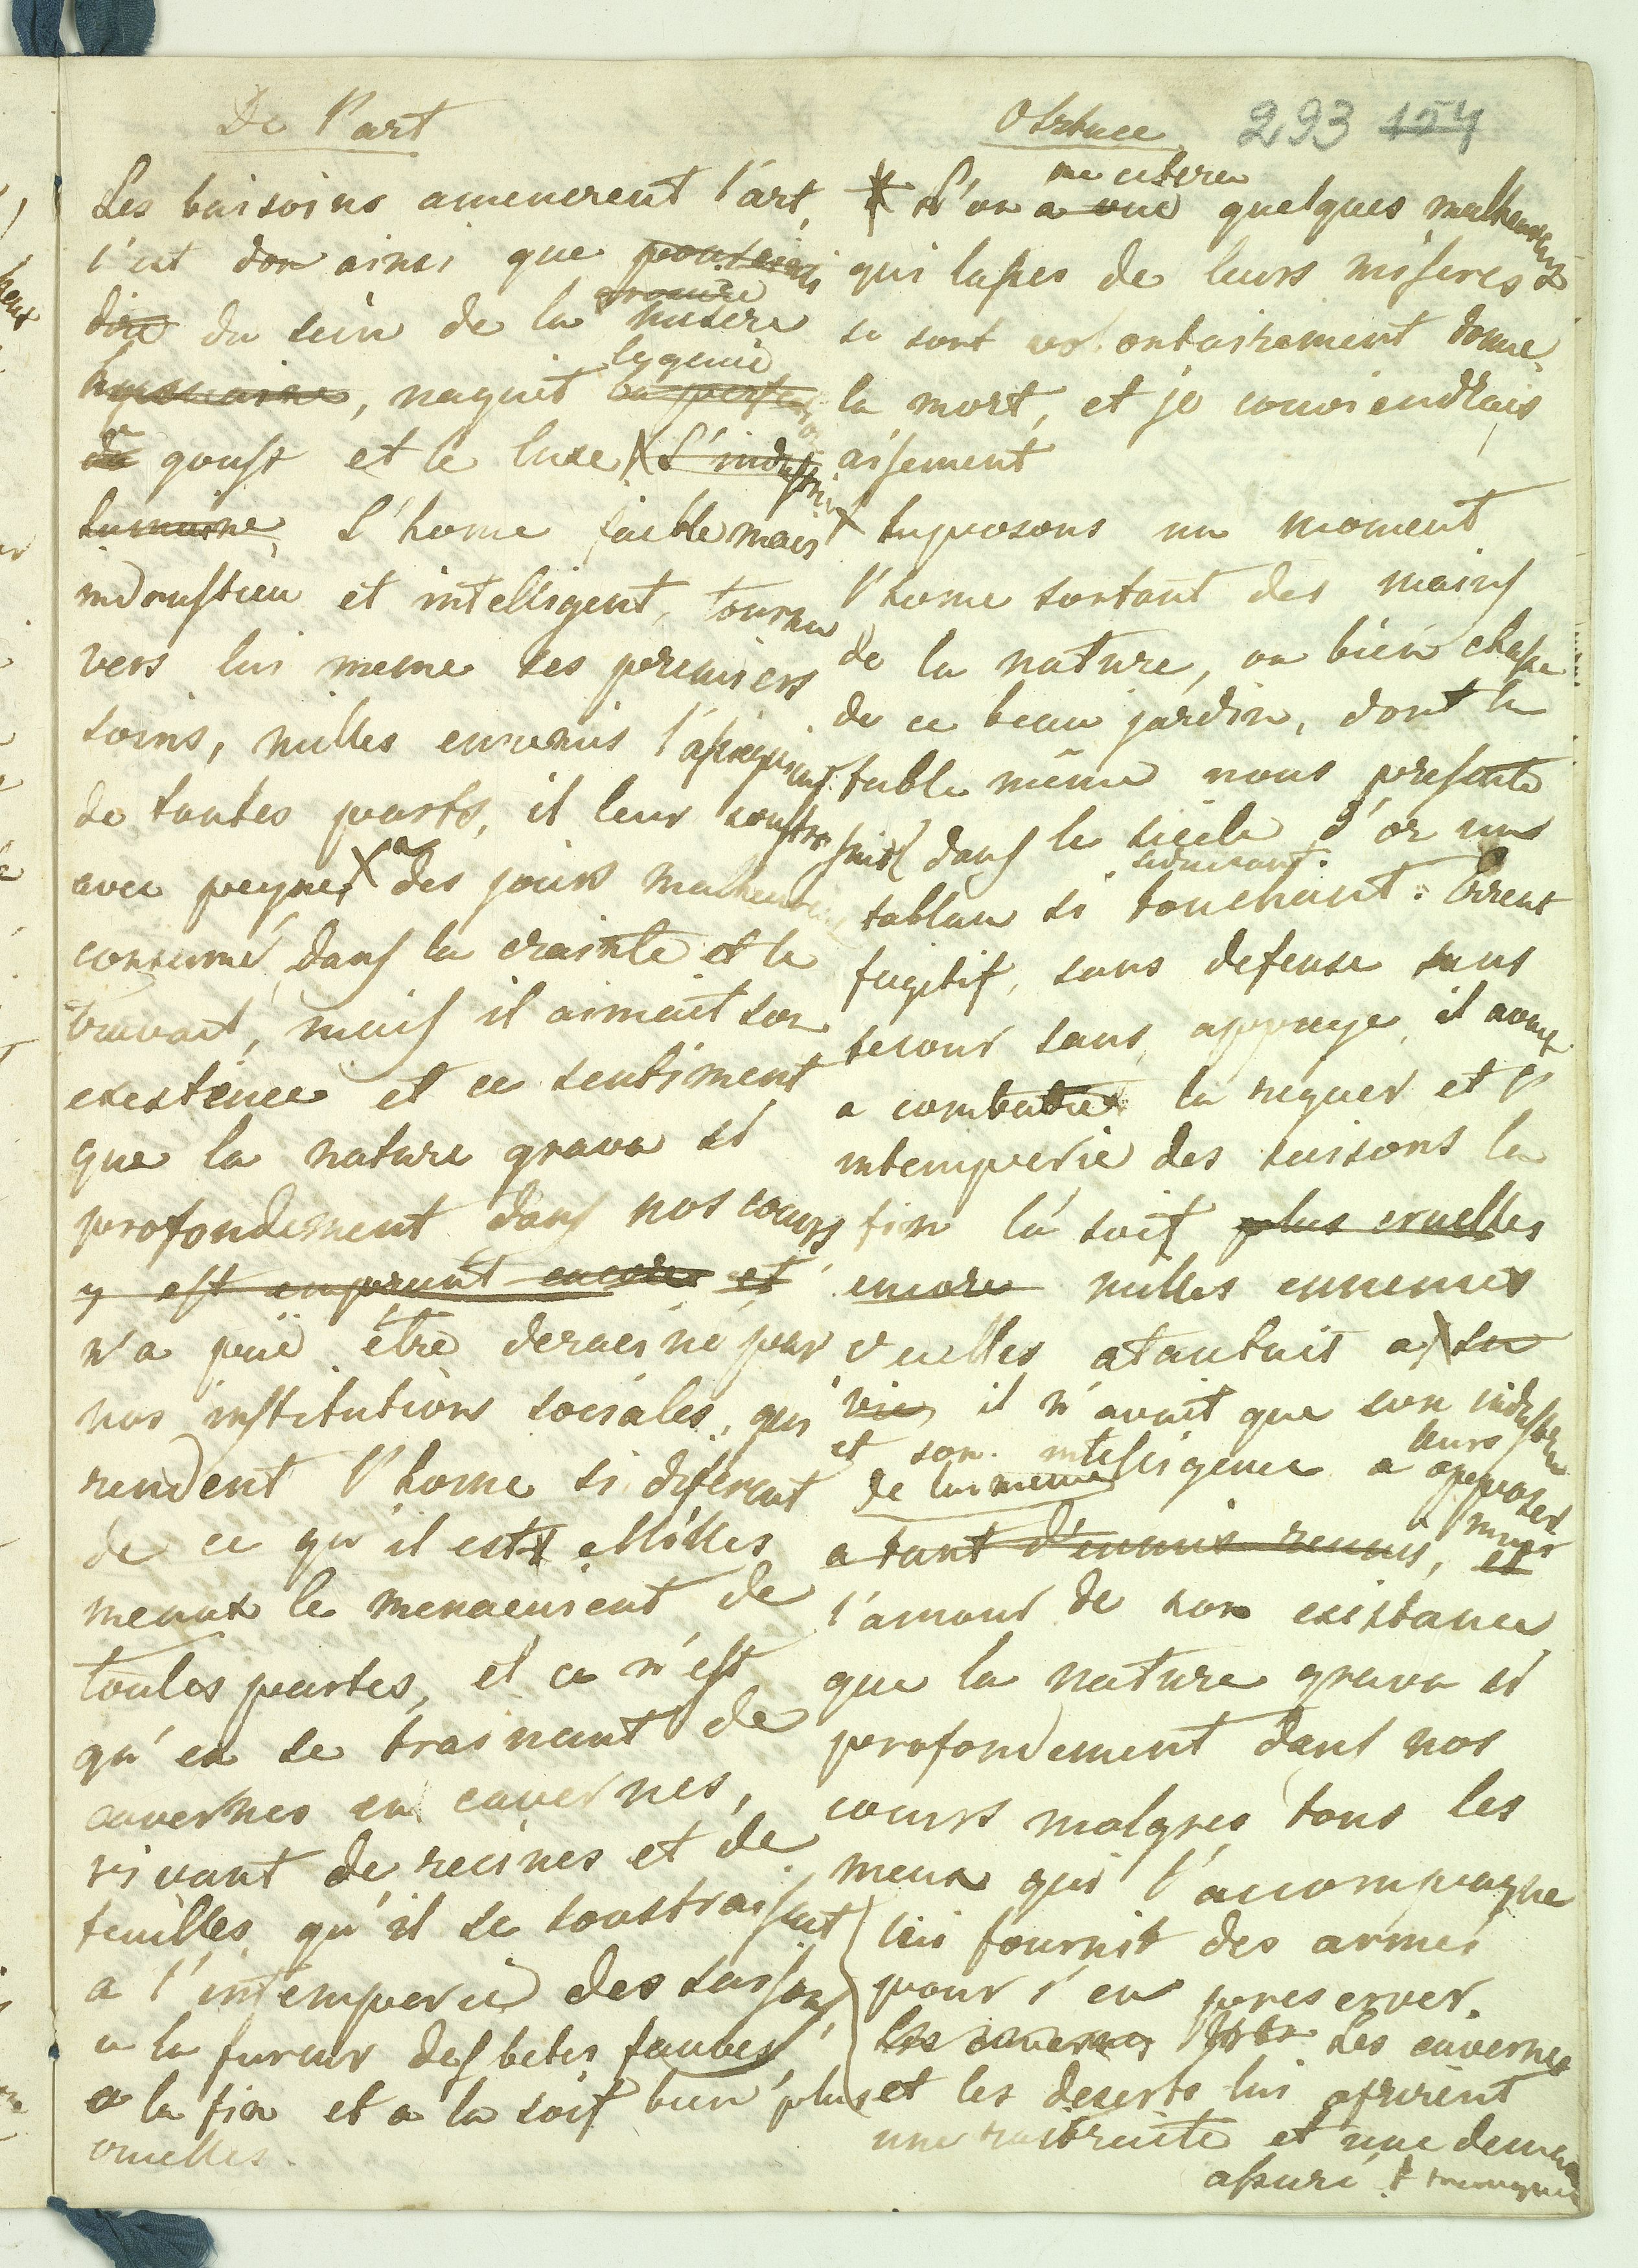 De l'art
Les baisoins amenerent l'art,
c'est don ainsi que
dire du sein de la misere
naquit le genie
goust et le luxe, L'industri
humaine, L'home faible mais
indoustieu et intelligent, tourna
vers lui meme ses premiers
soins, milles ennemis
de toutes parts, il leur
avec peyne des jours malheureux
consumé dans la crainte et le
travail, mais il aimait son
existence et ce sentiment
que la nature grava si
profondement dans nos cours
y est enprunt encores et
n'a puë être deracine par
nos institutions sociales, qui
rendent l'home si diferent
de ce qu'il est Milles
meaux le menacusient de
toutes partes, et ce n'est
qu'en se trasnant de
cavernes en cavernes,
vivant de recines et de
feuilles qu'il se soustraisait
a l'intemperie des saisons
a la fureur des betes fauves
a la fin et a la soif bien plus
cruelles.
293 154
me citera
L'on a vuë quelques malheureux
qui lasses de leurs miseres
se sont volontairement donne
la mort, et je conviendrais
aisement
suposons un moment
l'home sortant des mains
de la nature, ou bien chasse
de ce beau jardin, dont la
fable même nous presente
dans le siecle d'or un
seduisant
tableau si touchant: Errent
fugitif, sans defense sans
secour sans appuye, il avait
a combatre la riguer et l'
intemperie des saisons la
fin la soif plus cruelles
encore milles ennemis
cruelles atantait a sa
vie, il n'avait que son industrie
et son intelligence a leurs opposer
de lui meme
a tant d'ennuis reunis, et mais
l'amour de son existance
que la nature grava si
profondement dans nos
cours malgres tous les
meux qui l'accompagne
lui fournit des armes
pour s'en preserver.
les cavernes Les cavernes
et les deserts lui ofrirent
une raitraite et une demeure
assuré